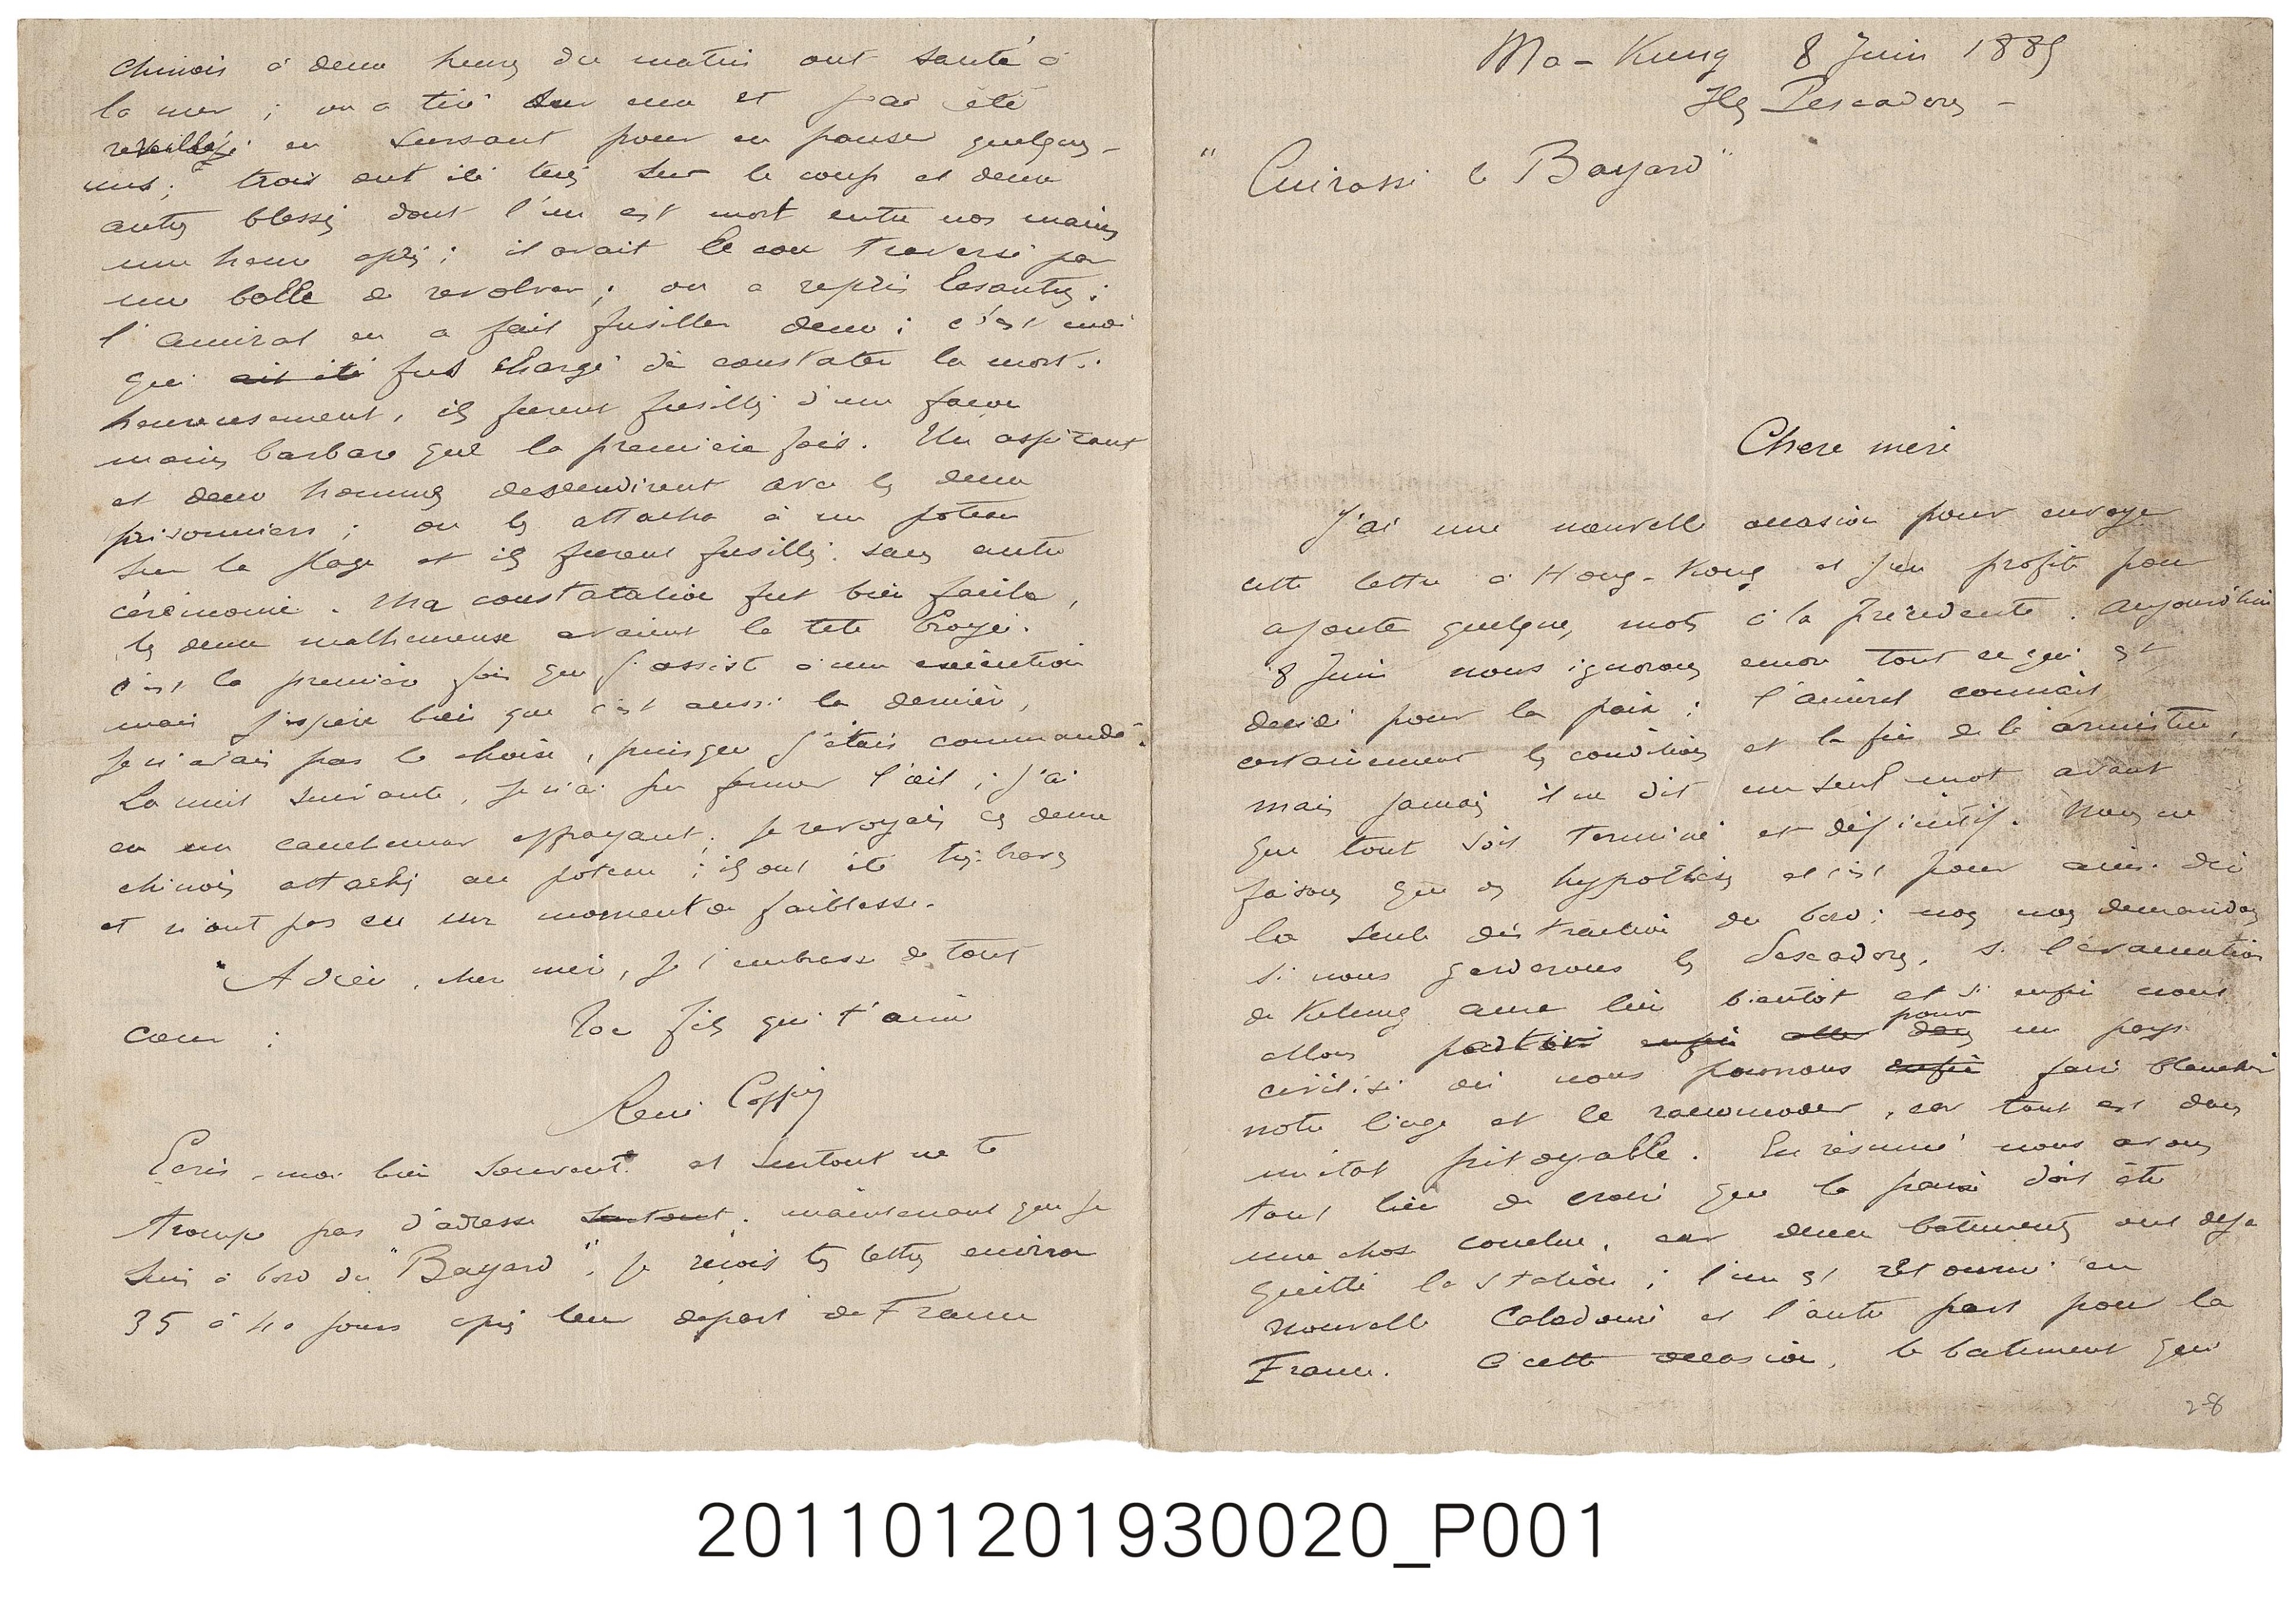 Ma-Kung 8 Juin 1885
Iles Pescadores -
"Cuirassé le Bayard"
Chere mère
J'ai une nouvelle occasion pour envoyer
cette lettre à Hong-Kong et j'en profite pour
ajouter quelques mots à la précédente. Aujourd'hui
8 Juin nous ignorons encore tout ce qui est
decidé pour la paix ; l'amiral connait
certainement les conditions et la fin de l'armistice,
mais jamais il ne dit un seul mot avant
que tout soit terminé et définitif. Nous ne
faisons que des hypothèses et c'est pour ainsi dire
la seule distraction du bord ; nous nous demandons
si nous garderons les Pescadores, si l'évacuation
de Kelung aura lieu bientôt et si enfin nous
allons partir enfin aller dans pour un pays
civilisé où nous pourrons enfin faire blanchir
notre linge et le raccommoder, car tout est dans
un état pitoyable. En résumé nous avons
tout lieu de croire que la paix doit être
une chose conclue, car deux batiments ont deja
quitté la station ; l'un est retourné en
nouvelle Caledonie et l'autre part pour la
France. A cette occasion, le batiment qui
28
chinois à deux heures du matin ont sauté à
la mer ; on a tiré sur eux et j'ai été
reveillé en sursaut pour en panser quelques-
uns ; trois ont été tués sur le coup et deux
autres blessés dont l'un est mort entre nos mains
une heure après ; il avait le cou traversé par
une balle de revolver ; on a repris les autres ;
l'amiral en a fait fusiller deux ; c'est moi
qui ait été fus chargé de constater la mort ;
heureusement, ils furent fusillés d'une façon
moins barbare que la première fois. Un aspirant
et deux hommes descendirent avec les deux
prisonniers ; on les attacha à un poteau
sur la plage et ils furent fusillés sans autre
cérémonie. Ma constatation fut bien facile,
les deux malheureux avaient la tete broyée.
c'est la première fois que j'assiste à une exécution
mais j'espère bien que c'est aussi la dernière,
je n'avais pas le choix, puisque j'étais commandé.
La nuit suivante, je n'ai pu fermer l'œil ; j'ai
eu un cauchemar effrayant ; je revoyais ces deux
chinois attachés au poteau ; ils ont été très braves
et n'ont pas eu un moment de faiblesse.
Adieu, chere mère, je t'embrasse de tout
cœur : Ton fils qui t'aime
René Coppin
Ecris-moi bien souvent et surtout ne te
trompe pas d'adresse surtout ; maintenant que je
suis à bord du "Bayard", je reçois tes lettres environ
35 à 40 jours après leur depart de France
201101201930020_P001